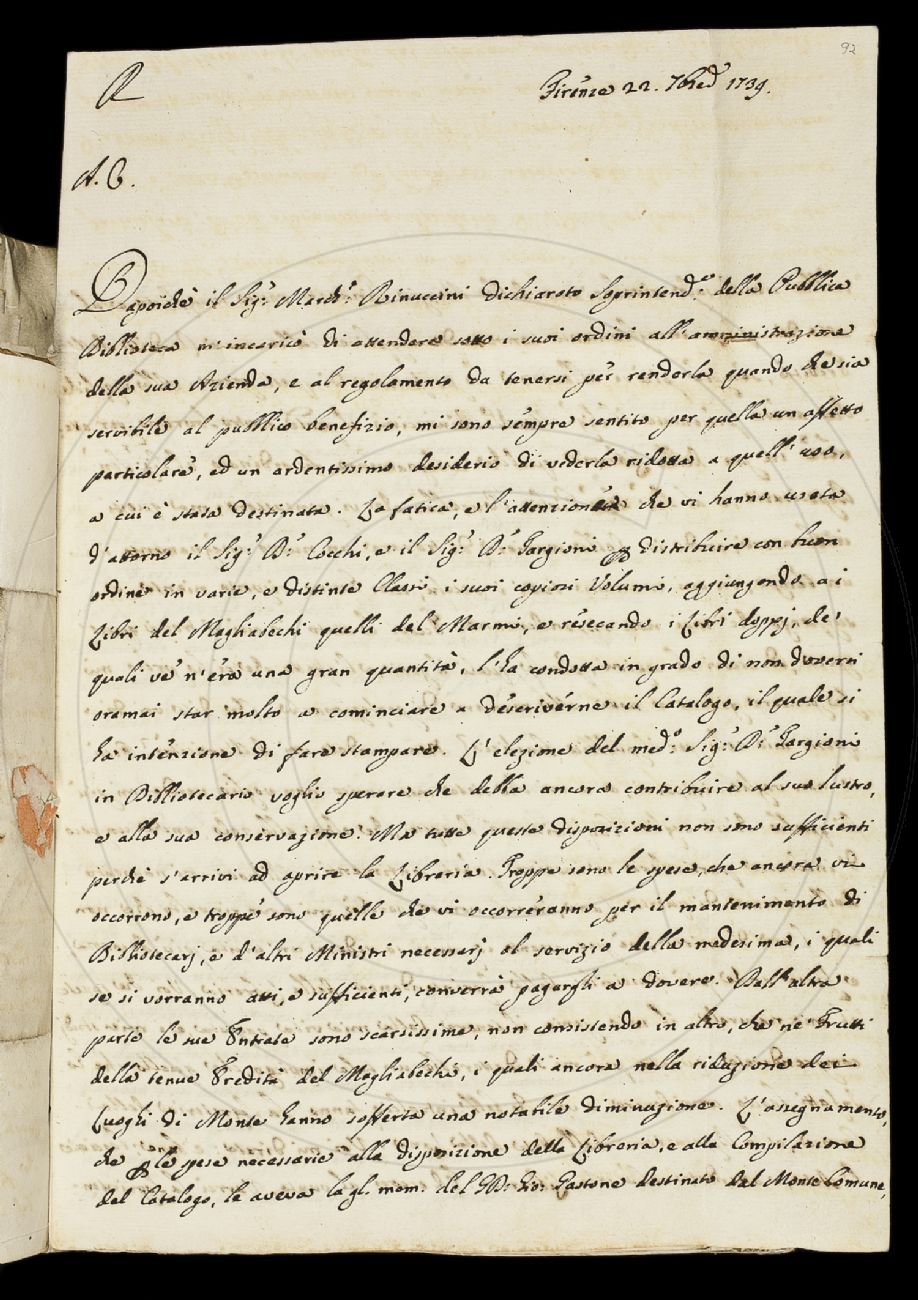 92
R
Firenze 22. 7bre 1739.
A. C.
Dapoichè il Sig.r March.e Rinuccini dichiarato Soprintend.e della Pubblica
Biblioteca m'incaricò di attendere sotto i suoi ordini all'amministrazione
della sua Azienda, e al regolamento da tenersi per renderla quando che sia
servibile al pubblico benefizio, mi sono sempre sentito per quella un affetto
particolare, ed un ardentissimo desiderio di vederla ridotta a quell'uso,
a cui è stata destinata. La fatica, e l'attenzione che vi hanno usata
d'attorno il Sig.r D.r Cocchi, e il Sig.r D.r Targioni p distribuire con buon
ordine in varie, e distinte Classi i suoi copiosi Volumi, aggiungendo a i
Libri del Magliabechi quelli del Marmi, e resecando i Libri doppj, de'
quali ve n'era una gran quantità, l'ha condotta in grado di non doversi
oramai star molto a cominciare a descriverne il Catalogo, il quale si
ha intenzione di fare stampare. L'elezione del med.o Sig.r D.r Targioni
in Bibliotecario voglio sperare che debba ancora contribuire al suo lustro,
e alla sua conservazione. Ma tutte queste disposizioni non sono sufficienti
perchè s'arrivi ad aprire la Libreria. Troppe sono le spese, che ancora vi
occorrono, e troppe sono quelle che vi occorreranno per il mantenimento di
Bibliotecarj, e d'altri Ministri necessarj al servizio della medesima, i quali
se si vorranno atti, e sufficienti, converrà pagargli a dovere. Dall'altra
parte le sue Entrate sono scarsissime, non consistendo in altro, che ne' Frutti
della tenue Eredità del Magliabechi, i quali ancora nella riduzione dei
Luoghi di Monte hanno sofferta una notabile diminuzione. L'assegnamento,
che p le spese necessarie alla disposizione della Libreria, e alla Compilazione
del Catalogo, le aveva la gl. mem. del GD. Gio: Gastone destinato dal Monte Comune,